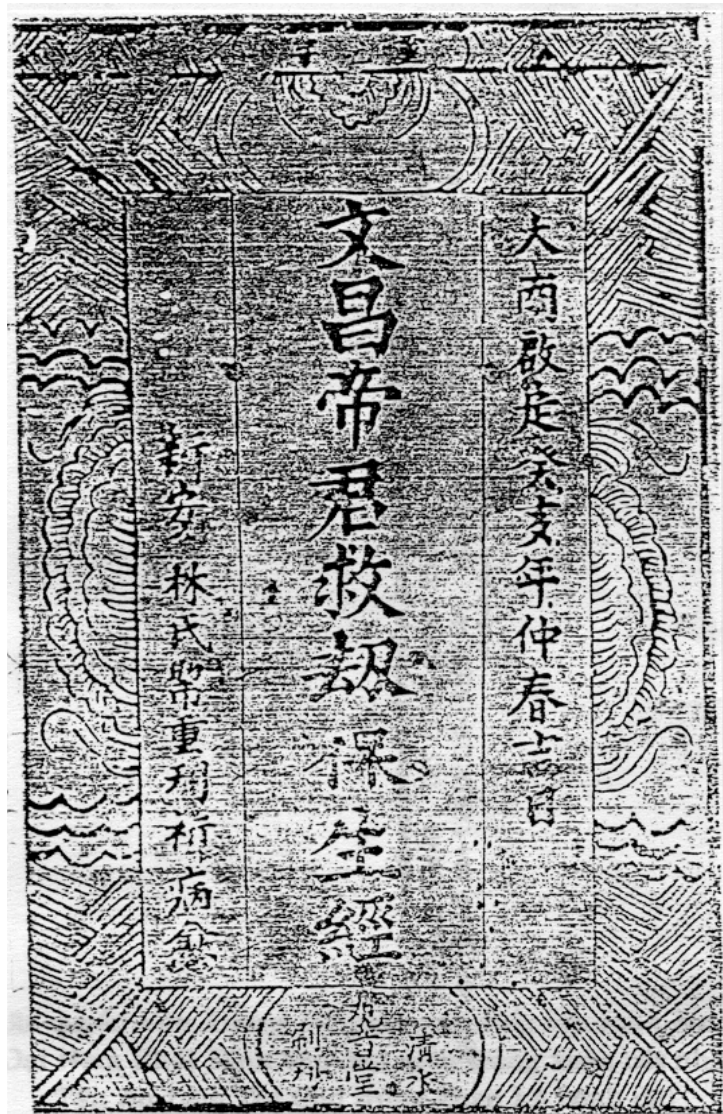 大南啟定癸亥年仲春吉日
文昌帝君救刼保生經
新安林氏幣重刊祈病愈
清水